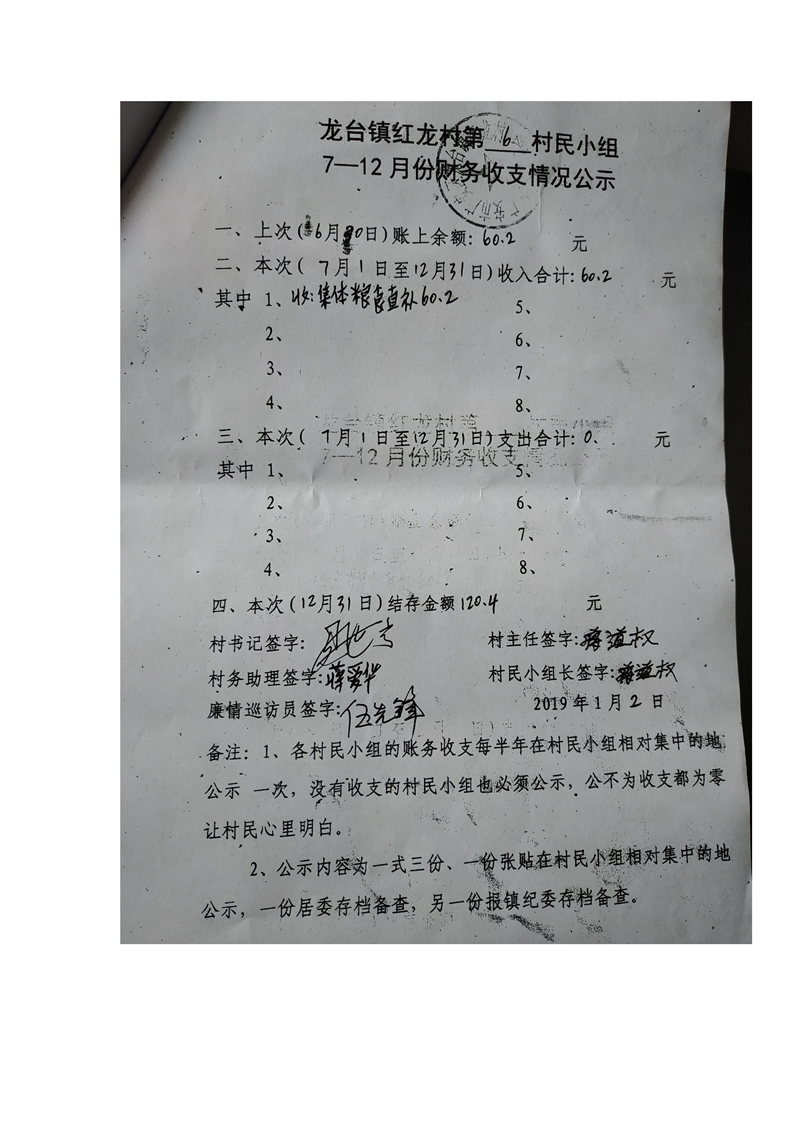 龙台镇红龙村第 6 村民小组
7—12月份财务收支情况公示
一、上次(6月30日)账上余额:60.2 元
二、本次(7月1日至12月31日)收入合计:60.2 元
其中 1、收:集体粮食直补60.2 5、
2、 6、
3、 7、
4、 8、
三、本次(7月1日至12月31日)支出合计:0. 元
其中 1、 5、
2、 6、
3、 7、
4、 8、
四、本次(12月31日)结存金额120.4 元
村书记签字: 村主任签字:蒋道权
村务助理签字:蒋爱华 村民小组长签字:蒋道权
廉情巡访员签字:伍先锋 2019年1月2日
备注:1、各村民小组的账务收支每半年在村民小组相对集中的地
公示 一次,没有收支的村民小组也必须公示,公不为收支都为零
让村民心里明白。
2、公示内容为一式三份、一份张贴在村民小组相对集中的地
公示,一份居委存档备查,另一份报镇纪委存档备查。